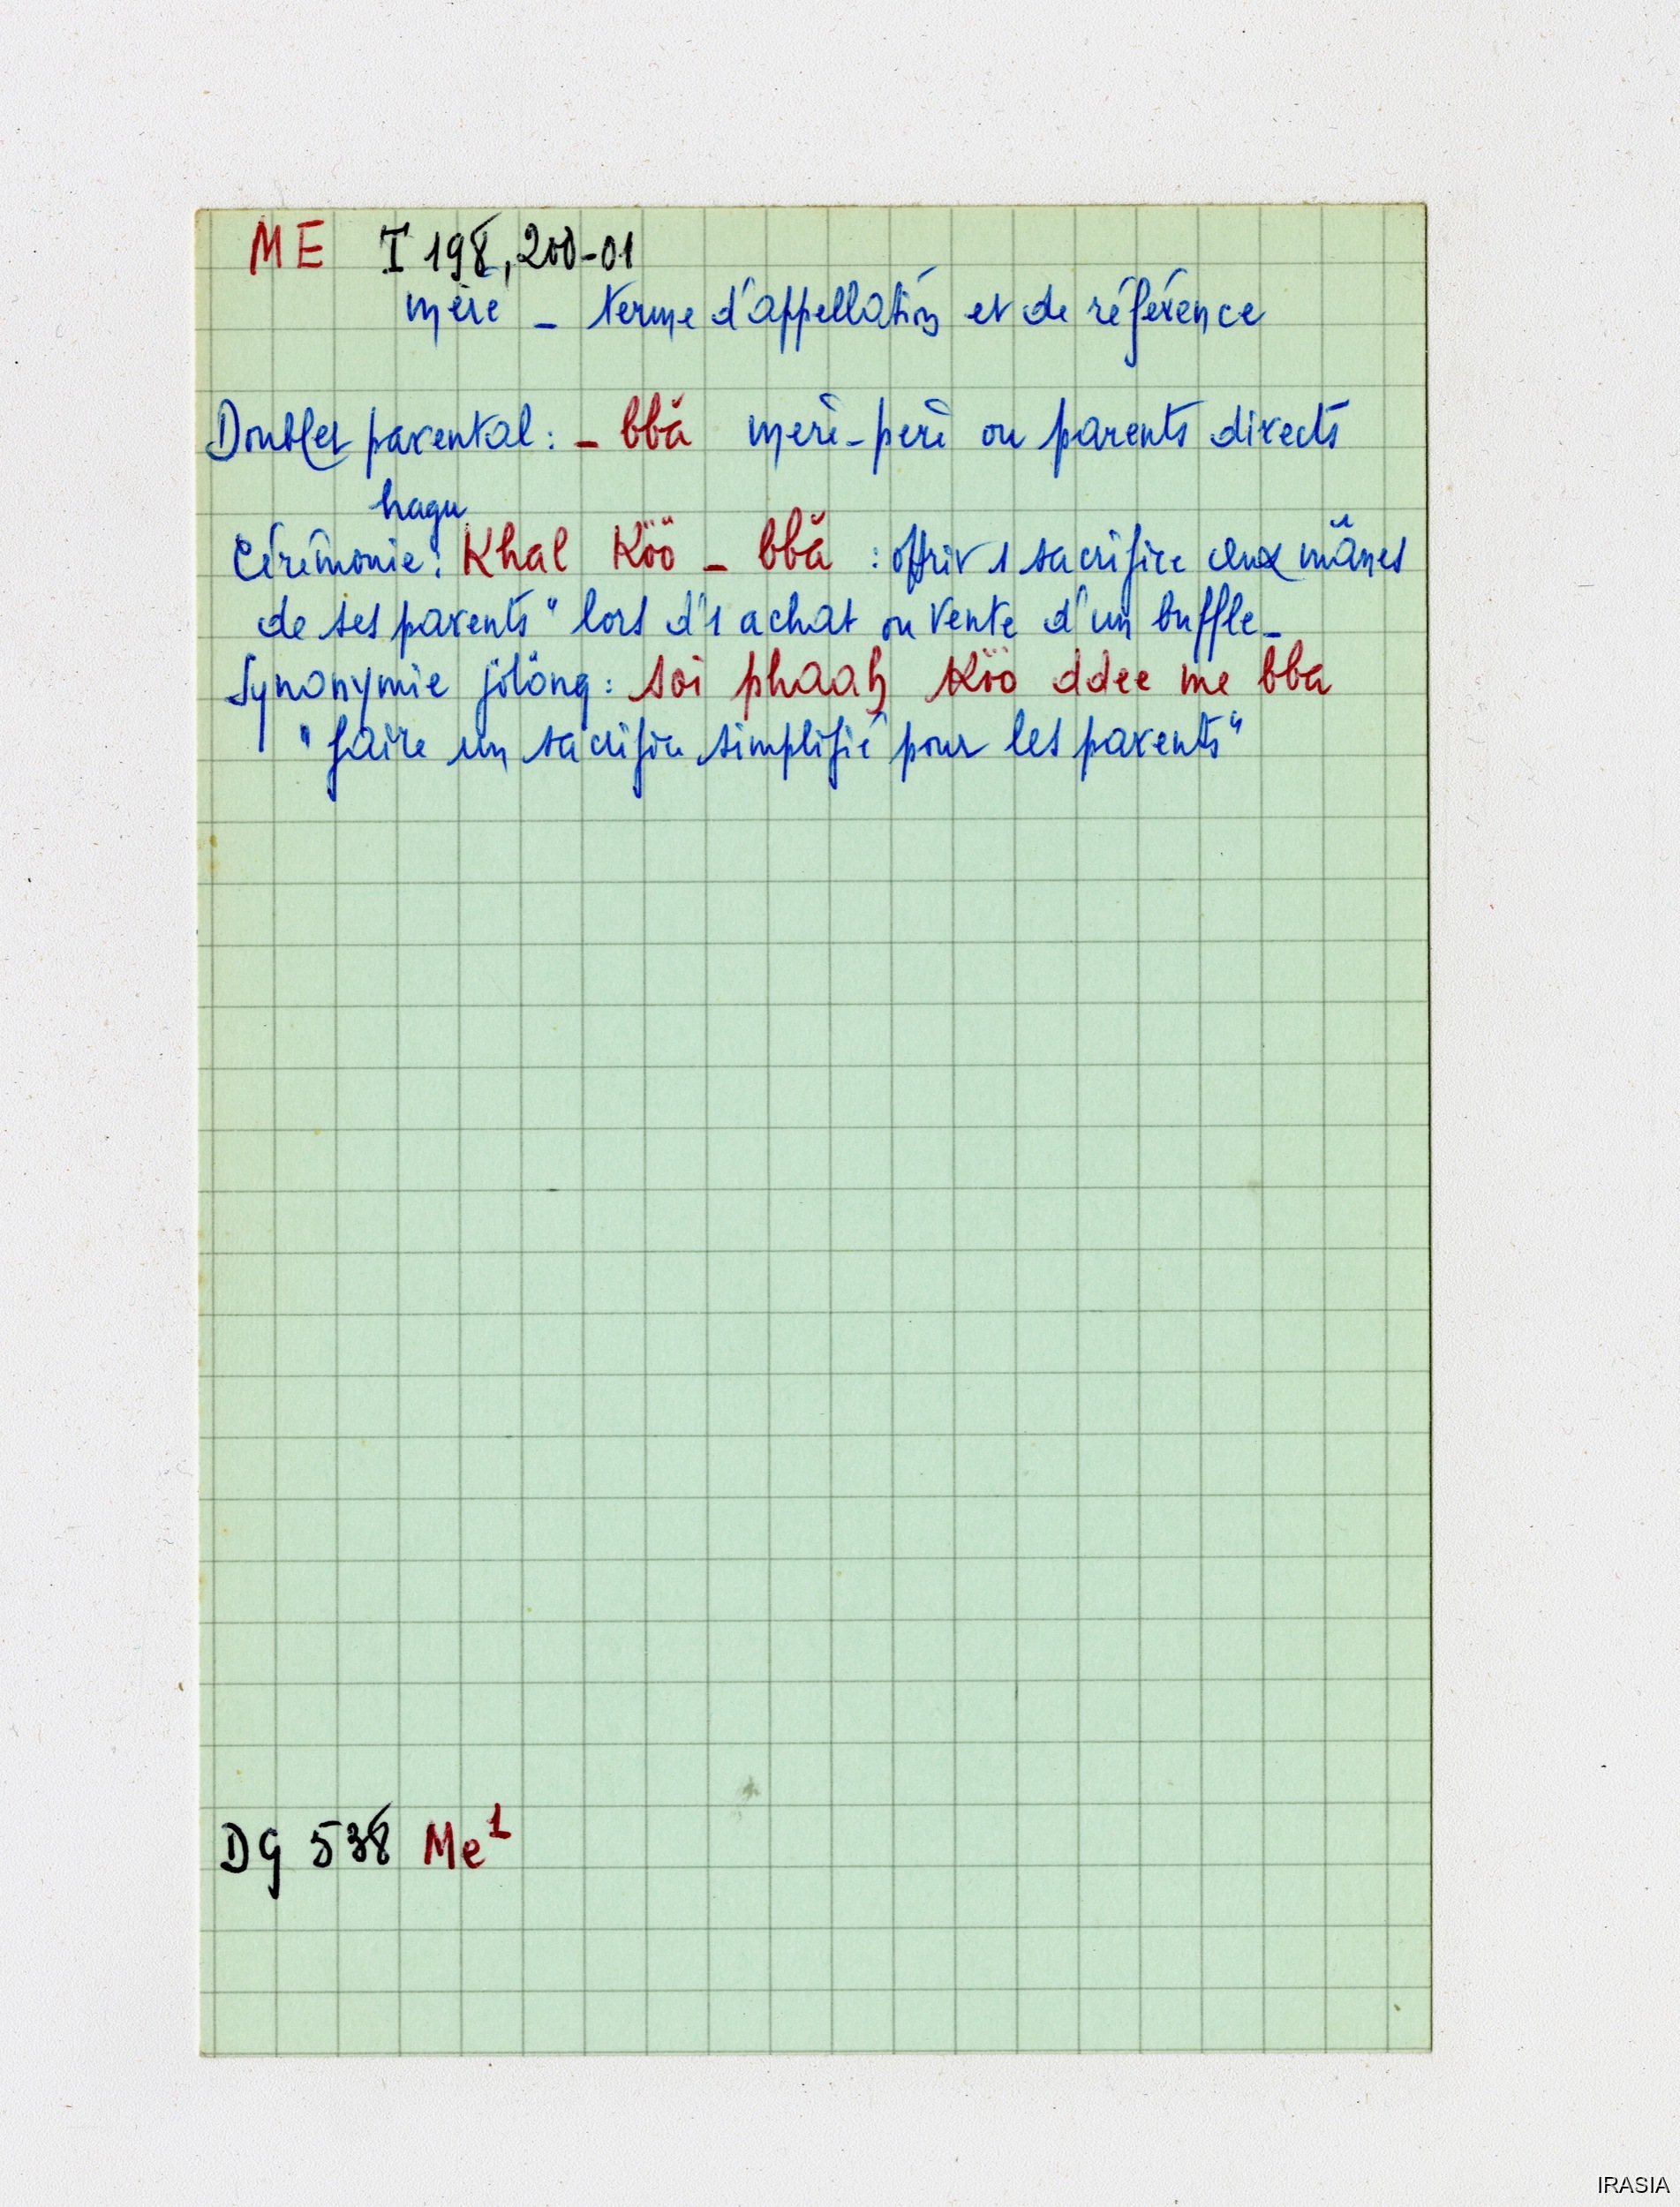 ME I 198, 200-01
mère _ terme d'appellation et de référence
Doublet parental : _ bbă mère-père ou parents directs
hagu
Cérémonie : Khal Köö _ bbă : offrir 1 sacrifice aux mânes
de ses parents" lors d'1 achat ou vente d'un buffle_
Synonymie jölöng : soi phaah Köö ddee me bba
"faire un sacrifice simplifié pour les parents"
DG 538 Me¹
IRASIA